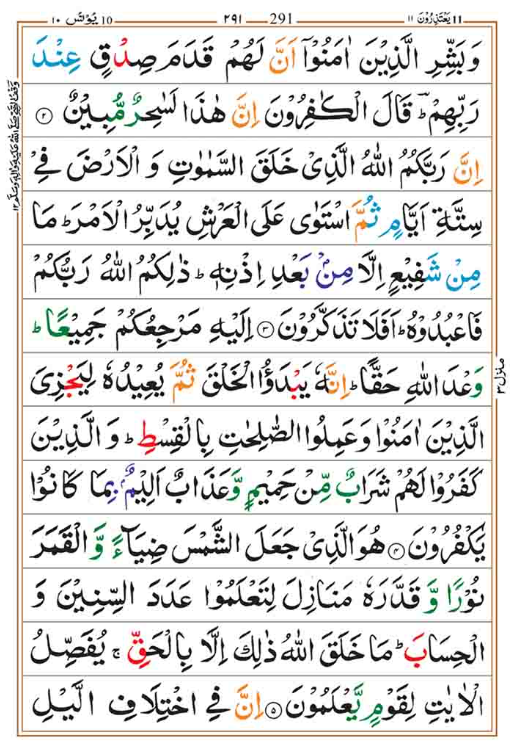 یَعْتَذِرُوْنَ ۱۱ 11 291 ۲۹۱ 10 یُوْنُسَ ۱۰
وَ بَشِّرِ الَّذِیْنَ اٰمَنُوْۤا اَنَّ لَهُمْ قَدَمَ صِدْقٍ عِنْدَ
رَبِّهِمْ ؕ قَالَ الْكٰفِرُوْنَ اِنَّ هٰذَا لَسٰحِرٌ مُّبِیْنٌ ۝۲
اِنَّ رَبَّكُمُ اللّٰهُ الَّذِیْ خَلَقَ السَّمٰوٰتِ وَ الْاَرْضَ فِیْ
سِتَّةِ اَیَّامٍ ثُمَّ اسْتَوٰی عَلَی الْعَرْشِ یُدَبِّرُ الْاَمْرَ ؕ مَا
مِنْ شَفِیْعٍ اِلَّا مِنْۢ بَعْدِ اِذْنِهٖ ؕ ذٰلِكُمُ اللّٰهُ رَبُّكُمْ
فَاعْبُدُوْهُ ؕ اَفَلَا تَذَكَّرُوْنَ ۝۳ اِلَیْهِ مَرْجِعُكُمْ جَمِیْعًا ؕ
وَعْدَ اللّٰهِ حَقًّا ؕ اِنَّهٗ یَبْدَؤُا الْخَلْقَ ثُمَّ یُعِیْدُهٗ لِیَجْزِیَ
الَّذِیْنَ اٰمَنُوْا وَ عَمِلُوا الصّٰلِحٰتِ بِالْقِسْطِ ؕ وَ الَّذِیْنَ
كَفَرُوْا لَهُمْ شَرَابٌ مِّنْ حَمِیْمٍ وَّ عَذَابٌ اَلِیْمٌۢ بِمَا كَانُوْا
یَكْفُرُوْنَ ۝۴ هُوَ الَّذِیْ جَعَلَ الشَّمْسَ ضِیَآءً وَّ الْقَمَرَ
نُوْرًا وَّ قَدَّرَهٗ مَنَازِلَ لِتَعْلَمُوْا عَدَدَ السِّنِیْنَ وَ
الْحِسَابَ ؕ مَا خَلَقَ اللّٰهُ ذٰلِكَ اِلَّا بِالْحَقِّ ۚ یُفَصِّلُ
الْاٰیٰتِ لِقَوْمٍ یَّعْلَمُوْنَ ۝۵ اِنَّ فِی اخْتِلَافِ الَّیْلِ
منزل ۳